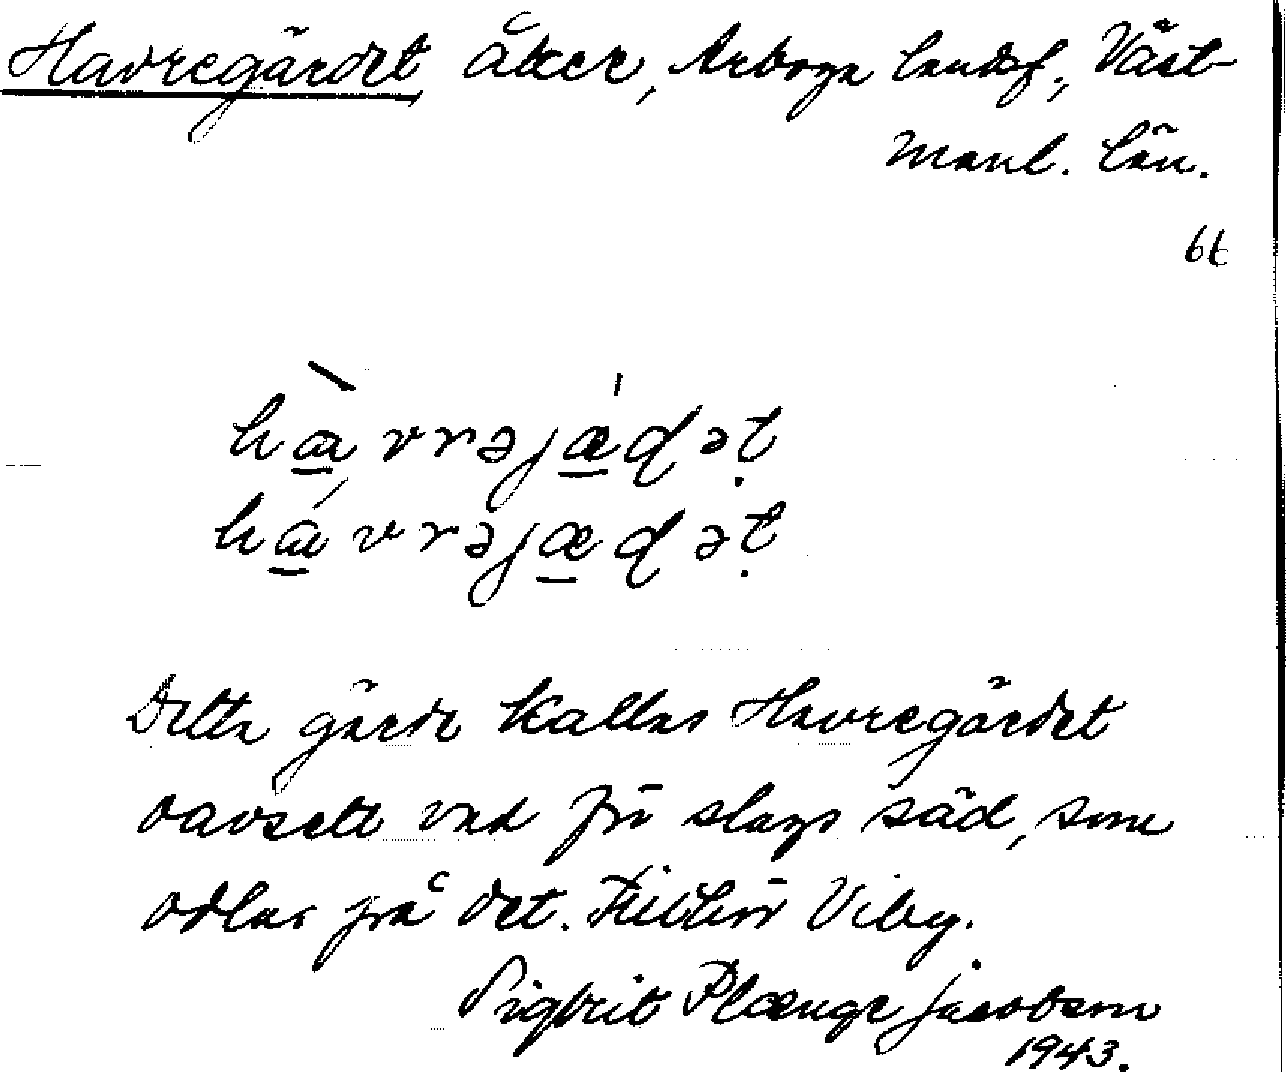 Havregärdet åker, Arboga landsf., Väst-
manl. län.
66
hàvrəjǽɖəṭ
hávrəjæɖəṭ
Detta gärde kallas Havregärdet
oavsett vad för slags säd, som
odlas på det. Tillhör Viby.
Sigbrit Plænge Jacobson
1943.